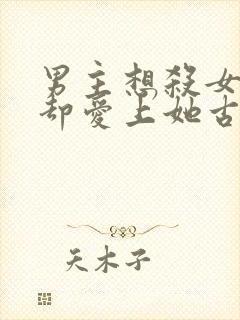 男主想殺女
却愛上她古
天木子